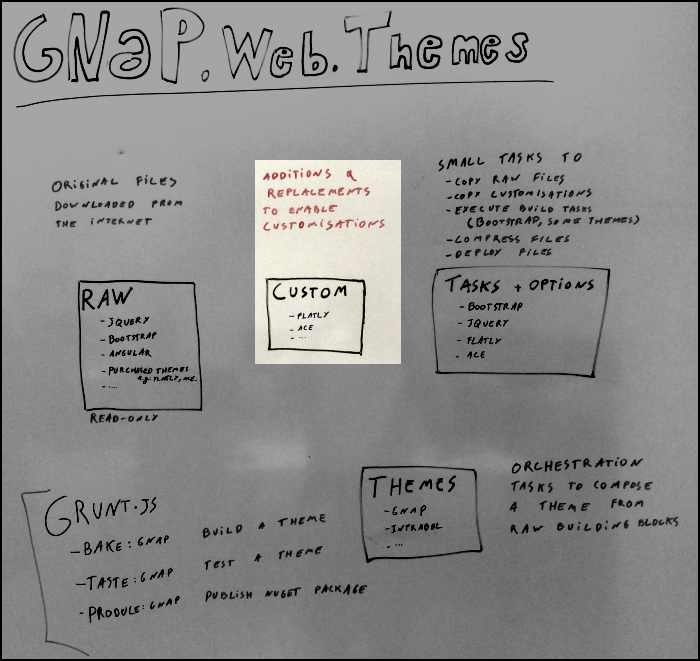 GNaP.Web.Themes
ORIGINAL FILES
DOWNLOADED FROM
THE INTERNET
RAW
- JQUERY
- BOOTSTRAP
- ANGULAR
- PURCHASED THEMES
e.g. FLATLY, ACE.
- ....
READ-ONLY
ADDITIONS &
REPLACEMENTS
TO ENABLE
CUSTOMISATIONS
CUSTOM
- FLATLY
- ACE
- ...
SMALL TASKS TO
- COPY RAW FILES
- COPY CUSTOMISATIONS
- EXECUTE BUILD TASKS
(BOOTSTRAP, SOME THEMES)
- COMPRESS FILES
- DEPLOY FILES
TASKS + OPTIONS
- BOOTSTRAP
- JQUERY
- FLATLY
- ACE
GRUNT.JS
- BAKE:GNAP BUILD A THEME
- TASTE:GNAP TEST A THEME
- PRODUCE:GNAP PUBLISH NUGET PACKAGE
THEMES
- GNAP
- INFRABEL
- ...
ORCHESTRATION
TASKS TO COMPOSE
A THEME FROM
RAW BUILDING BLOCKS